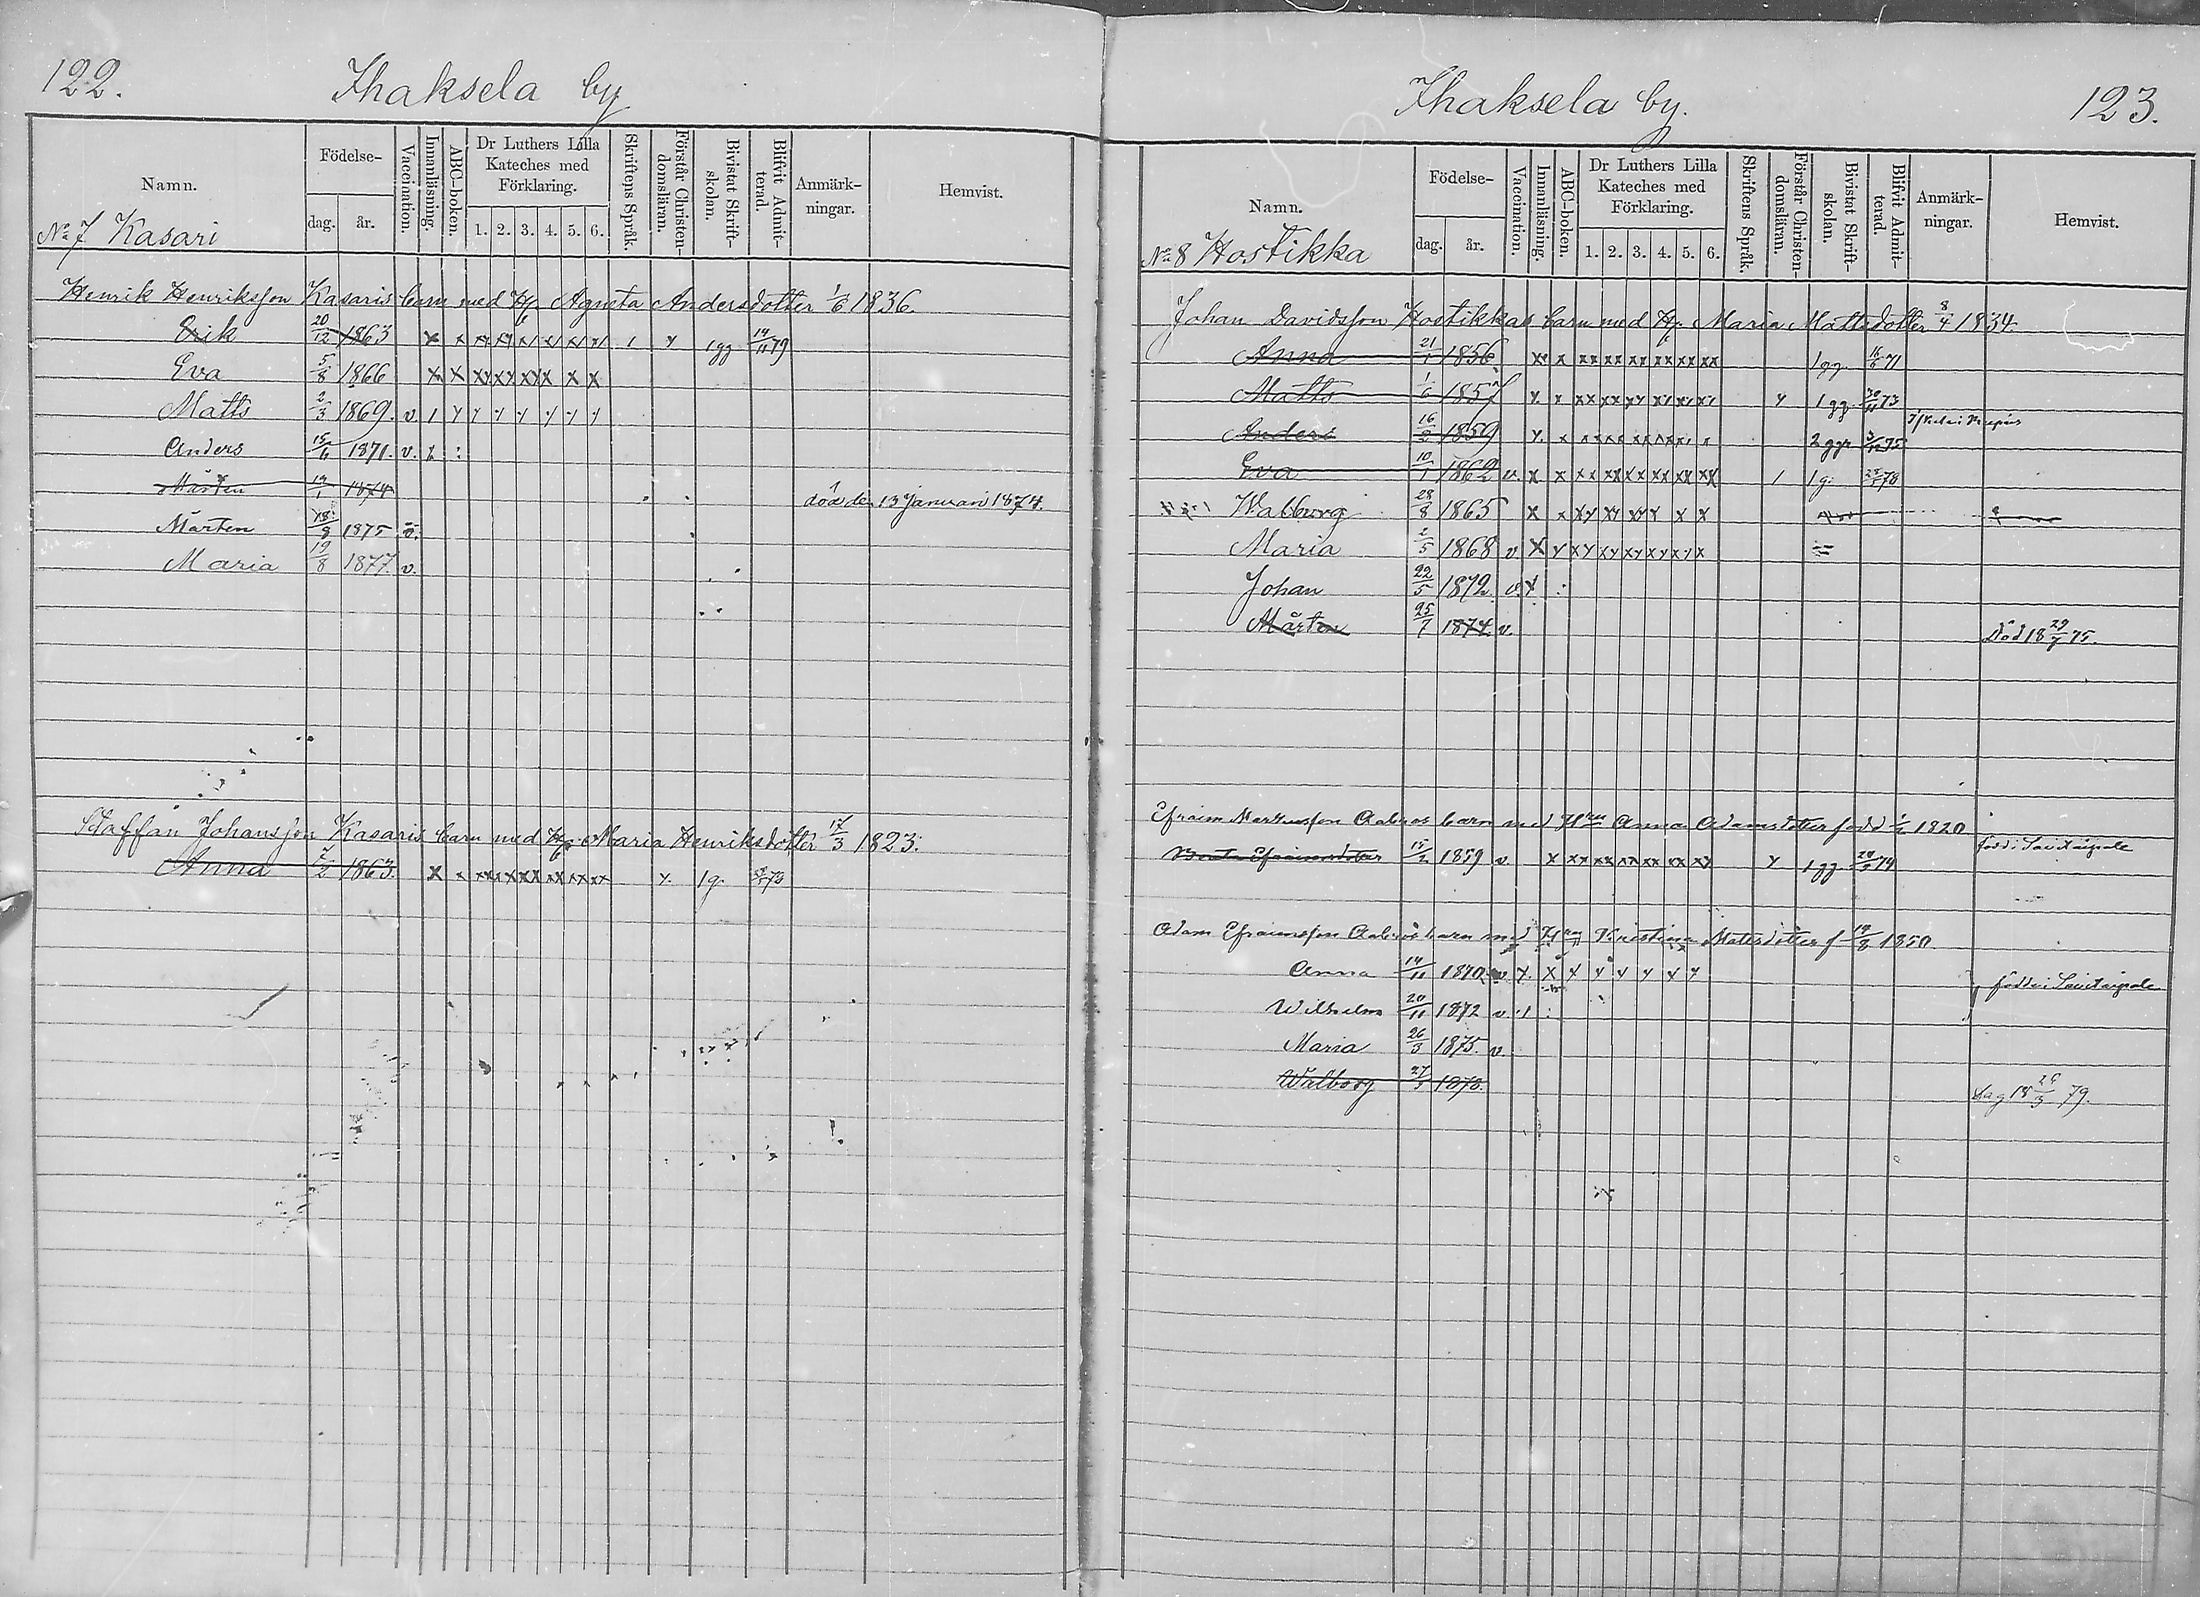 122.
Ihaksela by
Namn.
Födelse-
dag. år.
Vaccination.
Innanläsning.
ABC-boken.
Dr Luthers Lilla Kateches med Förklaring.
1. 2. 3. 4. 5. 6.
Skriftens Språk.
Förstår Christen-domsläran.
Bivistat Skrift-skolan.
Blifvit Admit-terad.
Anmärk-ningar.
Hemvist.
No 7 Kasari
Henrik Henriksson Kasaris barn med H. Agneta Andersdotter 1/6 1836.
Erik 20/12 1863 x x xx xx x/ x/ x/ x/ 1 y 1 gg 14/11 79
Eva 5/8 1866 x x xy xy xy x x x
Matts 2/3 1869. v. 1 y y y y y y y
Anders 15/11 1871. v. x :
Mårten 1874 död den 13 Januari 1874.
Mårten 18/8 1875 v.
Maria 19/8 1877. v.
Staffan Johansson Kasaris barn med H. Maria Henriksdotter 17/3 1823.
Anna 7/2 1863. x x xx xx xx xx xx xx y. 1 g.
123.
Ihaksela by.
Namn.
Födelse-
dag. år.
Vaccination.
Innanläsning.
ABC-boken.
Dr Luthers Lilla Kateches med Förklaring.
1. 2. 3. 4. 5. 6.
Skriftens Språk.
Förstår Christen-domsläran.
Bivistat Skrift-skolan.
Blifvit Admit-terad.
Anmärk-ningar.
Hemvist.
No 8 Hostikka
Johan Davidsson Hostikkas barn med H. Maria Mattsdotter 8/4 1834
Anna 21/1 1856 x x xx xx xx xx xx xx 1 gg. 16/6 71
Matts 1/6 1857 y. x xx xx xy xy xy xy y 1 gg 30/11 73
Anders 16/2 1859 y. x 2 ggr
Eva 10/1 1862 v. x x xx xx xx xx xx xx 1 1 g.
Walborg 28/8 1865 x x xy xy xy x x
Maria 2/5 1868 v. x y xy xy xy xy xy x
Johan 22/5 1872. v. x :
Mårten 25/7 1874 v. Död 18 29/7 75.
Efraim Aalnos barn med Hrn Anna Adamsdotter född 1/2 1820
Beata Efraimsdotter 15/2 1859 v x xx xx xx xx xx xy y 1 gg. född i Savitaipale
Adam Efraimsson barn med Hrn Kristina Mattsdotter f 19/8 1850
Anna 14/11 1870 v x. x x y y y y y födde i Savitaipale
Wilhelm 20/11 1872 v. 1 :
Maria 26/3 1875. v.
Walborg 1878. 79.